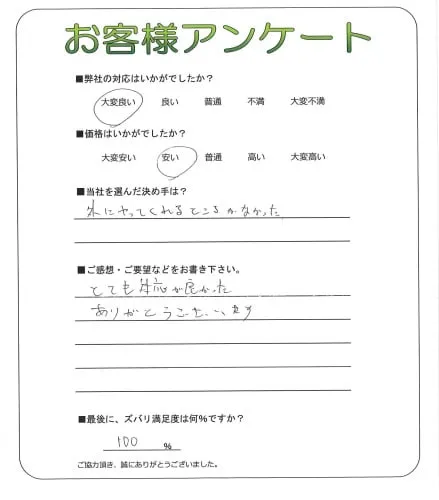 お客様アンケート
■弊社の対応はいかがでしたか?
大変良い 良い 普通 不満 大変不満
■価格はいかがでしたか?
大変安い 安い 普通 高い 大変高い
■当社を選んだ決め手は?
外にやってくれるところがなかった
■ご感想・ご要望などをお書き下さい。
とても対応が良かった
ありがとうございます
■最後に、ズバリ満足度は何%ですか?
100 %
ご協力頂き、誠にありがとうございました。